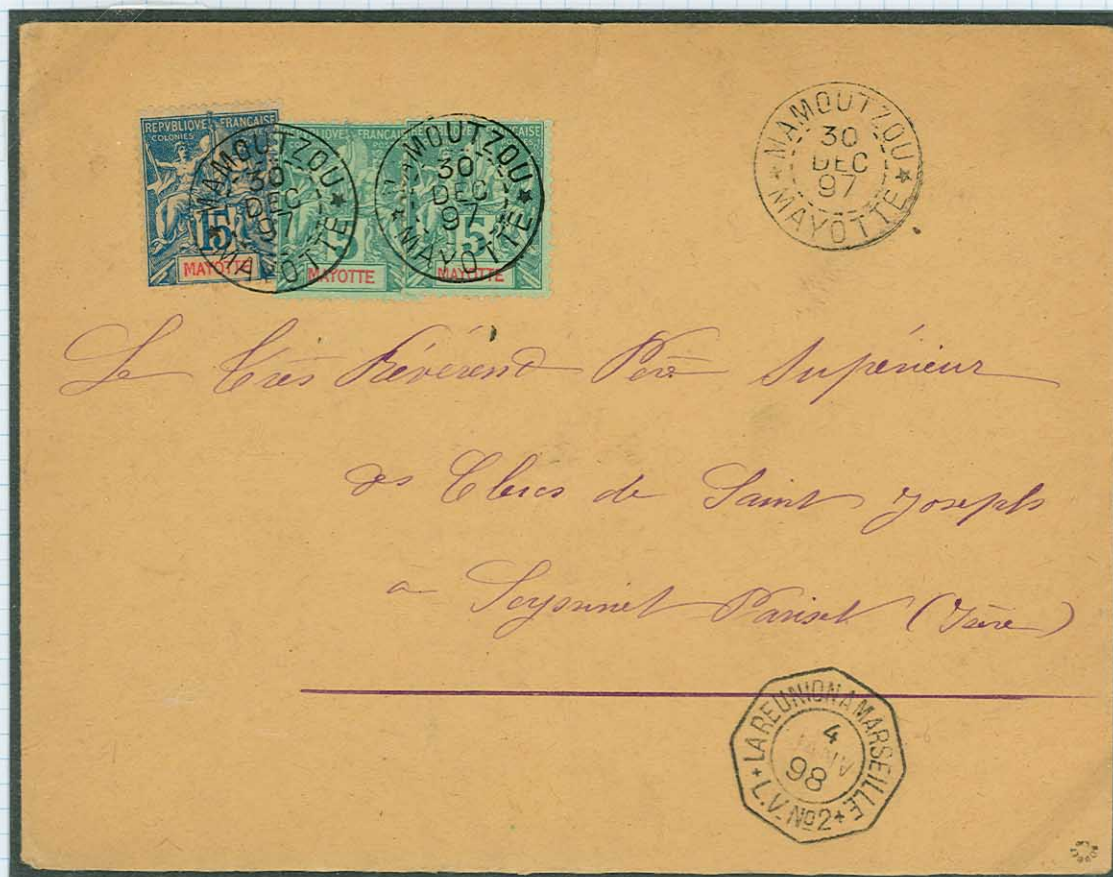 REPVBLIQVE FRANÇAISE
COLONIES
15
MAYOTTE
REPVBLIQVE FRANÇAISE
MAYOTTE
FRANÇAISE
5
MAYOTTE
MAMOUTZOU
30
DEC
97
MAYOTTE
MOUTZOU
30
DEC
97
MAYOTTE
MAMOUTZOU
30
DEC
97
MAYOTTE
Le Très Révérend Père Supérieur
des Clercs de Saint Joseph
a Seyssinet Pariset (Isère)
LA REUNION A MARSEILLE
4
JANV
98
L.V. No2